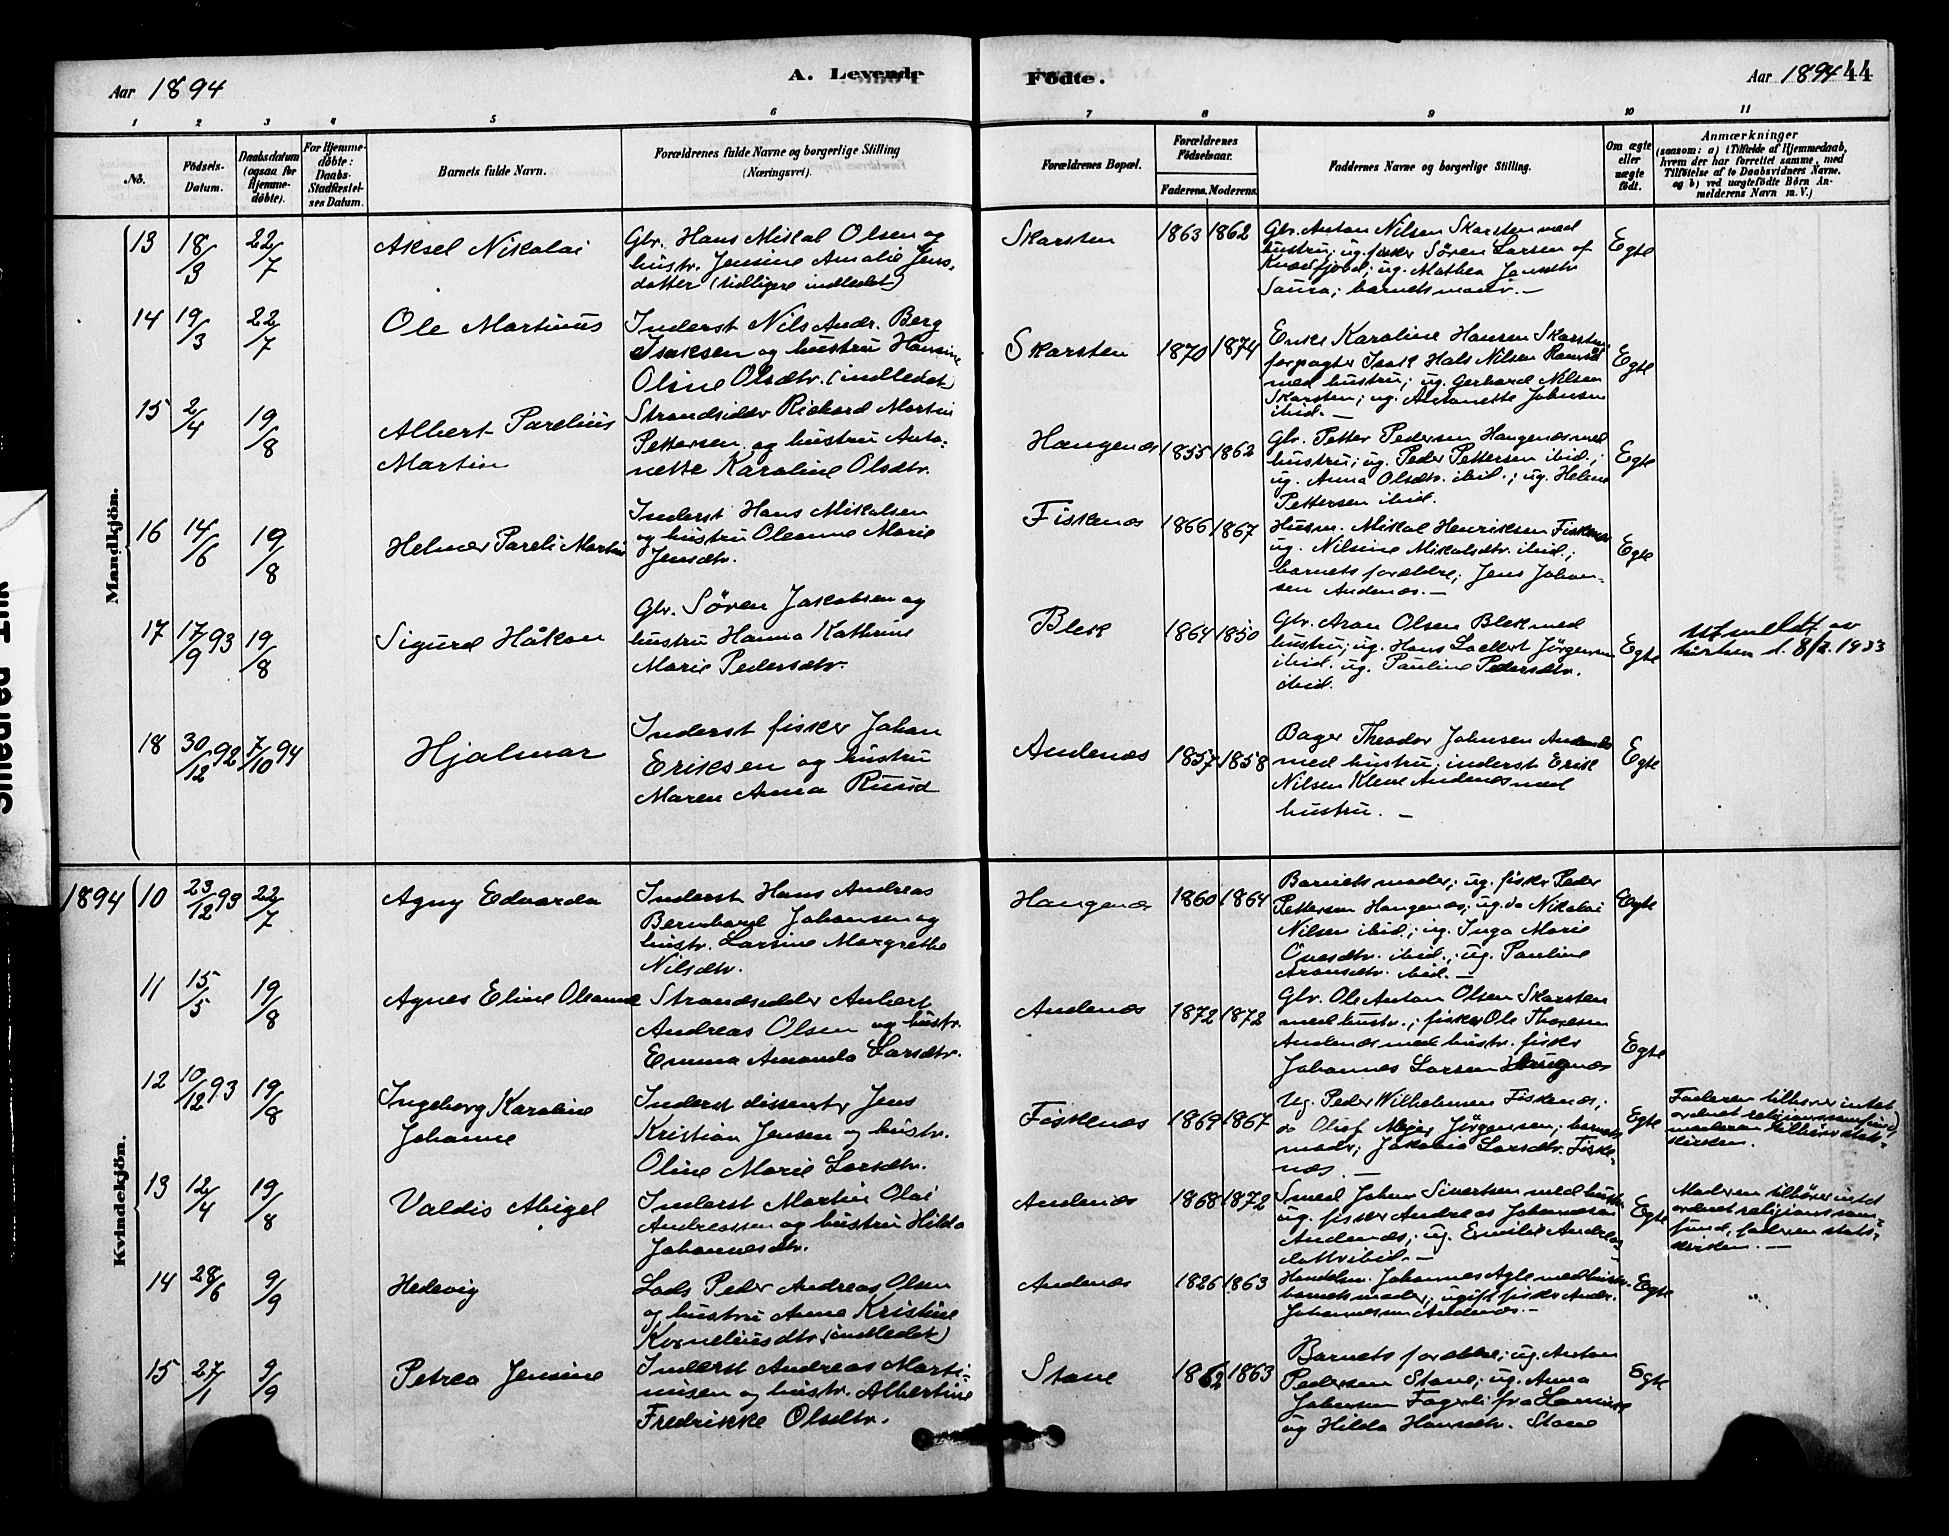 Aar 1894
A. Levende
Fødte.
Aar 1894 44
1 2 3 4 5 6 7 8 9 10 11
No.
Fødsels-
Datum.
Daabsdatum
(ogsaa for
Hjemme-
døbte).
For Hjemme-
døbte:
Daabs-
Stadfæstel-
ses Datum.
Barnets fulde Navn.
Forældrenes fulde Navne og borgerlige Stilling
(Næringsvei).
Forældrenes Bopæl.
Forældrenes
Fødselsaar.
Faderens. Moderens.
Faddernes Navne og borgerlige Stilling.
Om ægte
eller
uægte
født.
Anmærkninger
(saasom: a) i Tilfælde af Hjemmedaab,
hvem der har forrettet samme, med
Tilføielse af to Daabsvidners Navne,
og b) ved uægtefødte Børn An-
melderens Navn m. V.)
Mandkjön.
13 18/3 22/7
Aksel Nikolai
Gbr. Hans Mikal Olsen og
hustr. Jensine Amalie Jens-
datter (tidligere indledet)
Skarsten
1863 1862
Gbr. Anton Nilsen Skarsten med
hustru; ug. fisker Søren Larsen af
ug. Mathea
barnets moder. —
Egte
14 19/3 22/7
Ole Martinus
Inderst Nils Andr. Berg
Isaksen og hustru Hansine
Oline Olsdtr. (indledet)
Skarsten
1870 1874
Enke Karoline Hansen Skarsten;
forpagter Isak Hals Nilsen
med hustru; ug. Gerhard Nilsen
Skarsten; ug. Antonette Johnsen
ibid. —
Egte
15 2/4 19/8
Albert Parelius
Martin
Strandsidder Rickard Martin
Pettersen og hustru Anto-
nette Karoline Olsdtr.
Haugenæs
1855 1862
Gbr. Petter Pedersen Haugenæs med
hustru; ug. Peder Pettersen ibid.;
ug. Anna Olsdtr. ibid.; ug. Helene
Pettersen ibid.
Egte
16 14/6 19/8
Helmer Pareli Martin
Inderst Hans Mikalsen
og hustru Oleanne Marie
Jensdtr.
Fiskenæs
1866 1867
Husm. Mikal Henriksen Fiskenæs
ug. Nilsine Mikalsdtr. ibid.;
barnets forældre; Jens Johan-
sen Andenæs. —
Egte
17 17/9 93 19/8
Sigurd Håkon
Gbr. Søren Jakobsen og
hustru Hanna Kathrine
Marie Pedersdtr.
Bleik
1864 1850
Gbr. Aron Olsen Bleik med
hustru; ug. Hans Jörgensen
ibid. ug. Pauline Pedersdtr.
ibid.
Egte
utmeldt av
kirken d. 8/2 1933
18 30/12 92 7/10 94
Hjalmar
Inderst fisker Johan
Eriksen og hustru
Maren Anna Ruud
Andenæs
1857 1858
Bager Theodor Johnsen Andenæs
med hustru; inderst Erik
Nilsen Kleve Andenæs med
hustru. —
Egte
1894
Kvindekjön.
10 23/12 93 22/7
Agny Edvarda
Inderst Hans Andreas
Bernhard Johansen og
hustr. Larsine Margrethe
Nilsdtr.
Haugenæs
1860 1864
Barnets moder; ug. fisker Peder
Pettersen Haugenæs; ug. do Nikolai
Nilsen ibid.; ug. Inga Marie
ibid.; ug. Pauline
Aronsdtr. ibid. —
Egte
11 15/5 19/8
Agnes Eline Oleanna
Strandsidder Anbert
Andreas Olsen og hustr.
Emma Amanda Larsdtr.
Andenæs
1872 1872
Gbr. Ole Anton Olsen Skarsten
med hustr.; fisker Ole Thoresen
Andenæs med hustr. fisker
Johannes Larsen Haugnæs
Egte
12 10/12 93 19/8
Ingeborg Karoline
Johanne
Inderst dissenter Jens
Kristian Jensen og hustr.
Oline Marie Larsdtr.
Fiskenæs
1869 1867
Ug. Peder Wilhelmsen Fiskenæs;
do Oluf Meyer Jörgensen; barnets
moder; Jakobia Larsdtr. Fiske-
næs —
Egte
Faderen tilhører intet
ordnet religionssamfund,
moderen tilhører stats-
kirken.
13 12/4 19/8
Valdis Abigel
Inderst Martin Olai
Andreassen og hustru Hilda
Johannesdtr.
Andenæs
1868 1872
Smed Johan Sivertsen med hustru
ug. fisker Andreas Johannesen
Andenæs; ug. Emilie Andreas-
datter ibid. —
Egte
Moderen tilhører intet
ordnet religionssam-
fund, faderen stats-
kirken. —
14 28/6 9/9
Hedevig
Lods Peder Andreas Olsen
og hustru Anne Kristine
Korneliusdtr. (indledet)
Andenæs
1826 1863
Handelsm. Johannes Agle med hustr.
barnets moder; ugift fisker Andr.
Johannessen Andenæs. —
Egte
15 27/1 9/9
Petrea Jensine
Inderst Andreas Marti-
nusen og hustr. Albertine
Fredrikke Olsdtr.
Stave
1862 1863
Barnets forældre; ug. Anton
Pedersen Stave; ug. Anna
Johansen Fagerli fra
og Hilda Hansdtr. Stave
Egte